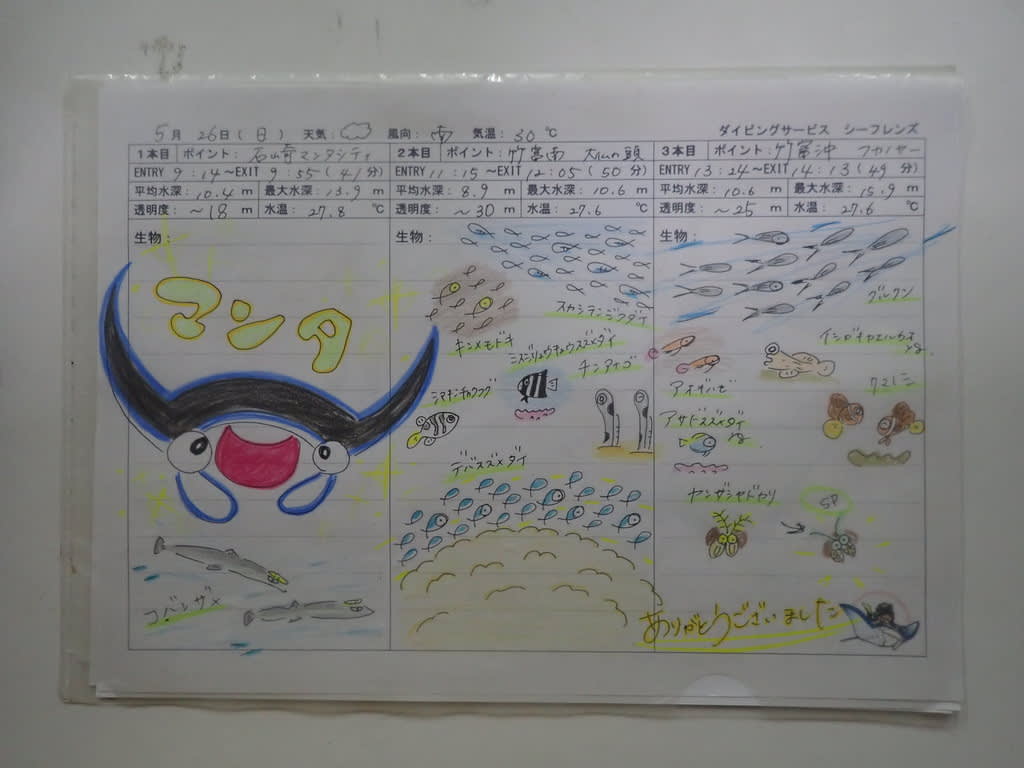 5月 26日(日) 天気: 風向: 南 気温: 30℃
ダイビングサービス シーフレンズ
1本目 ポイント: 石崎マンタシティ
ENTRY 9:14～EXIT 9:55(41分)
平均水深: 10.4 m 最大水深: 13.9 m
透明度: ～18 m 水温: 27.8 ℃
生物:
マンタ
コバンザメ
2本目 ポイント: 竹富南 の頭
ENTRY 11:15～EXIT 12:05(50分)
平均水深: 8.9 m 最大水深: 10.6 m
透明度: ～30 m 水温: 27.6 ℃
生物:
スカシテンジクダイ
キンメモドキ
ミスジリュウキュウスズメダイ
チンアナゴ
デバスズメダイ
3本目 ポイント: 竹富沖
ENTRY 13:24～EXIT 14:13(49分)
平均水深: 10.6 m 最大水深: 15.9 m
透明度: ～25 m 水温: 27.6 ℃
生物:
グルクン
クマノミ
アサドスズメダイ
yg.
ヤシガシヤドカリ
SP
ありがとうございました